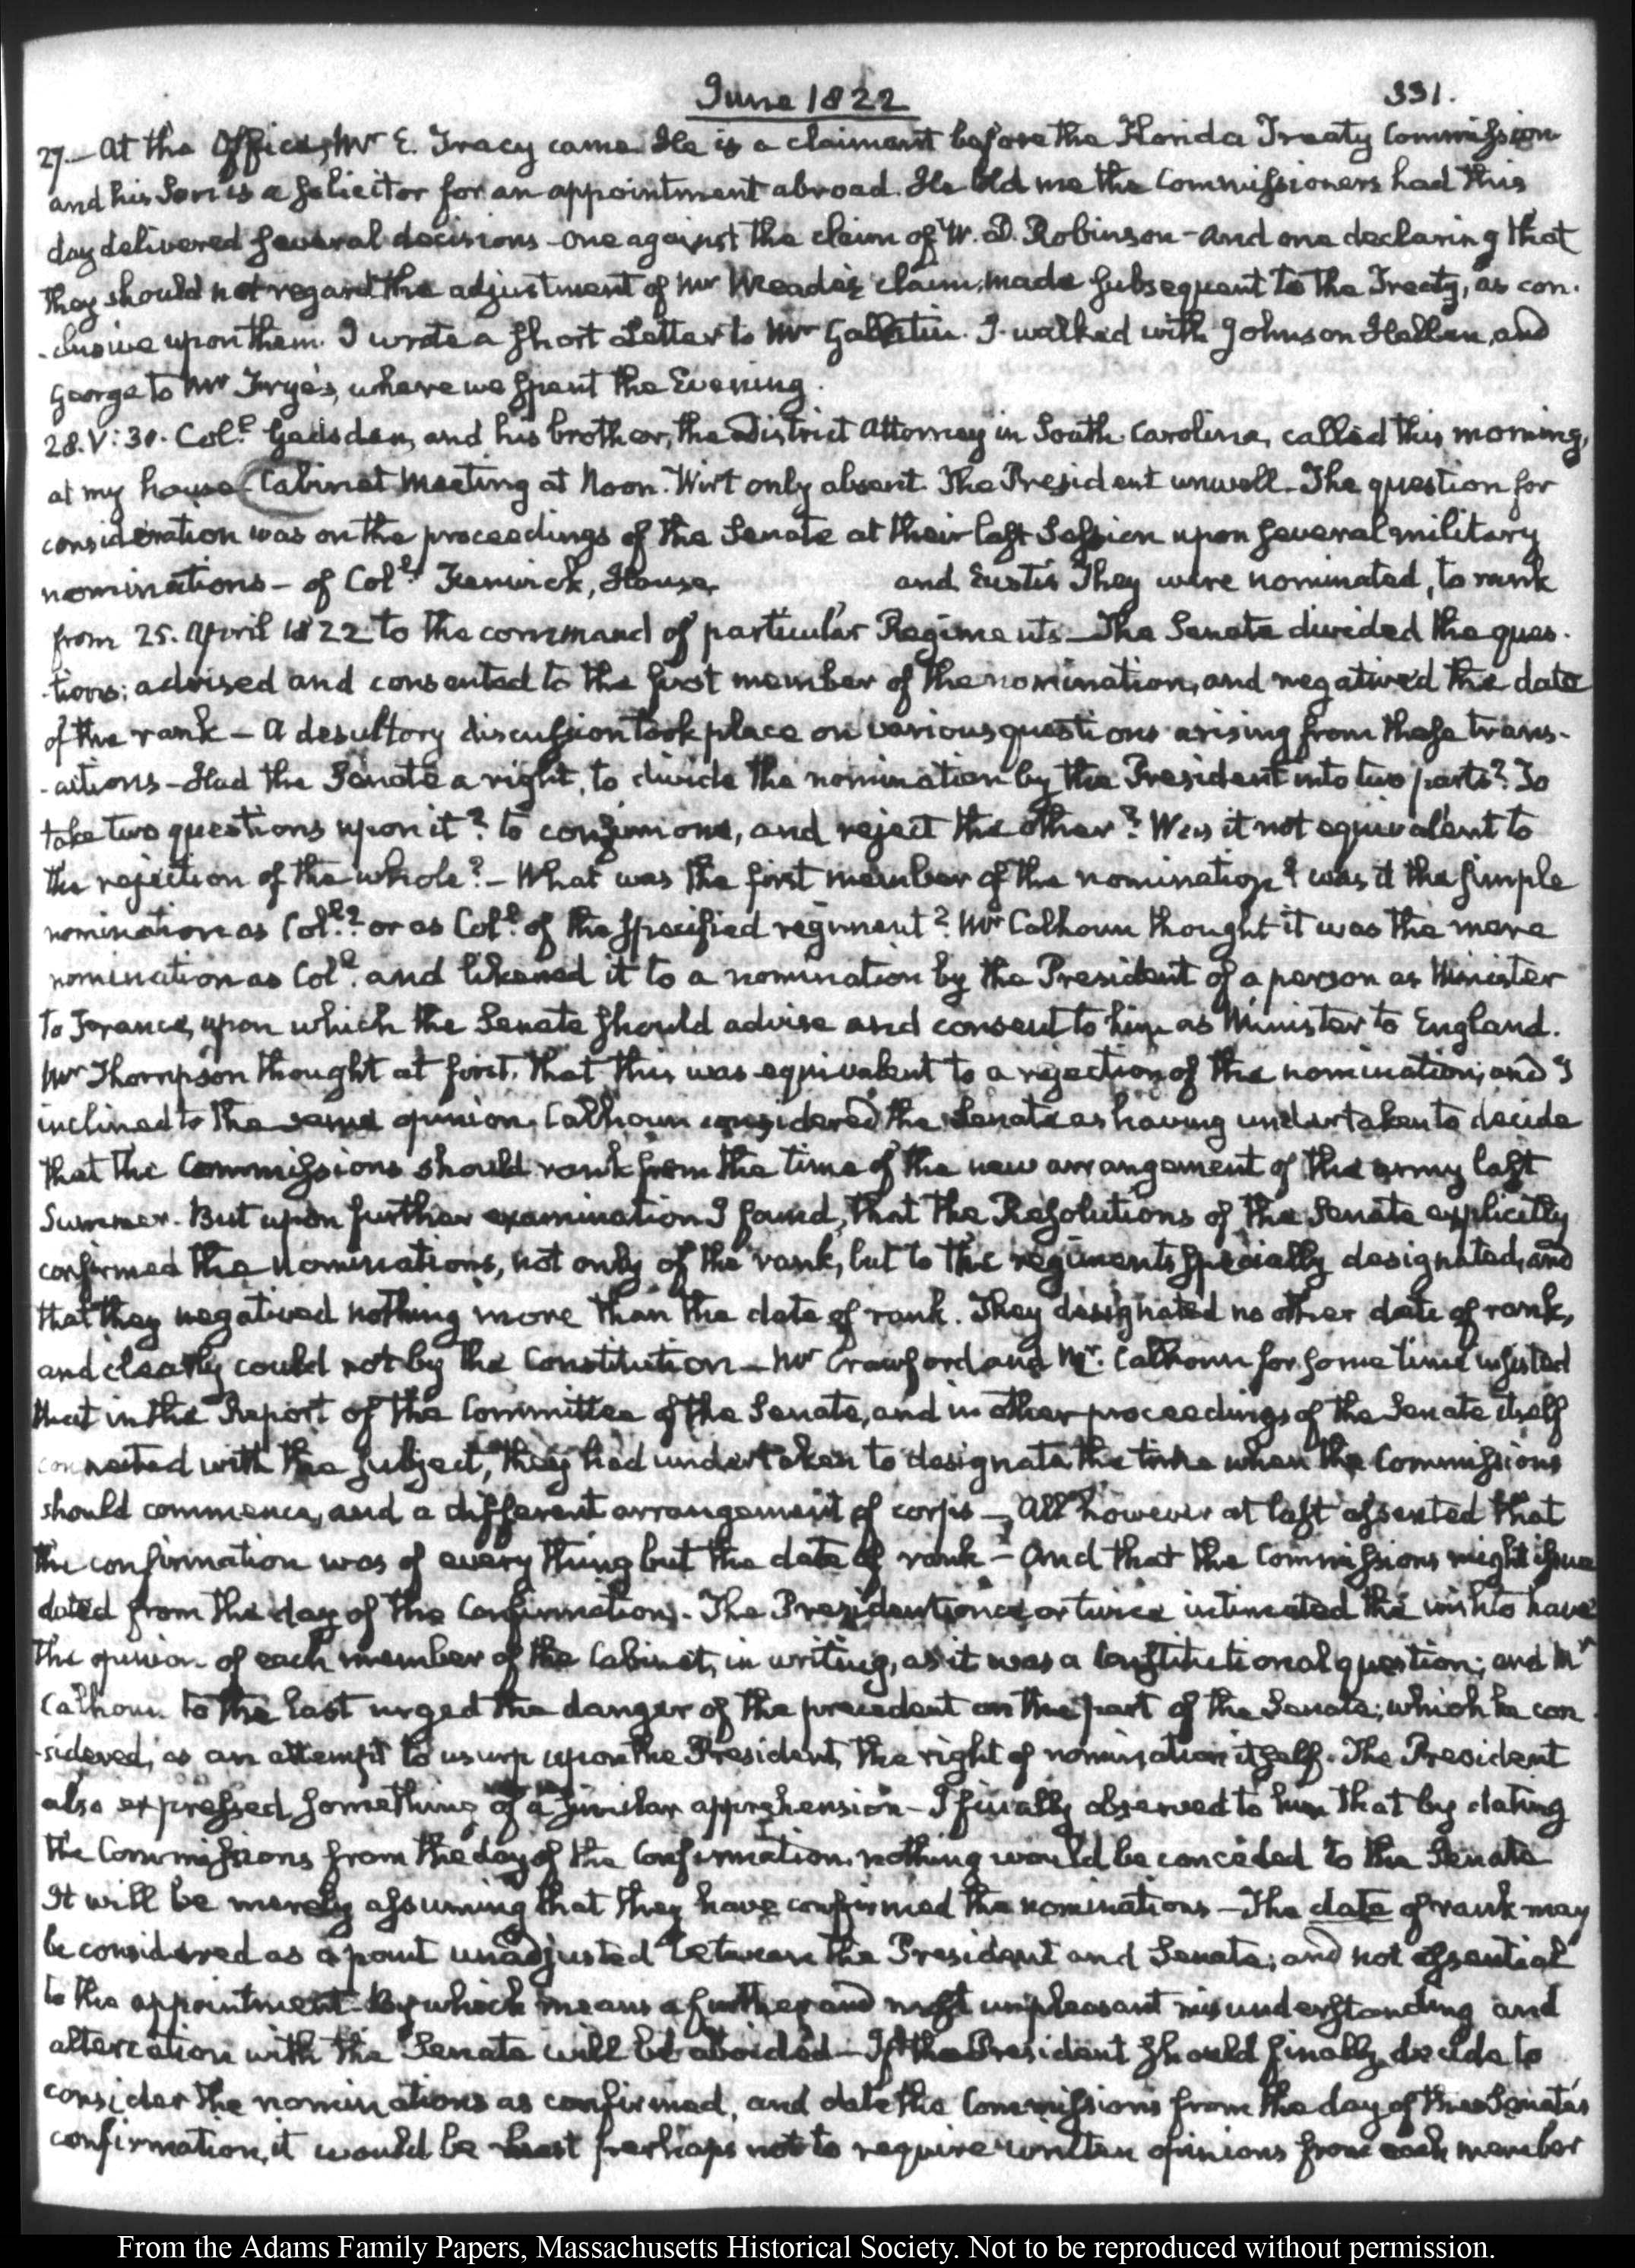 June 1822
331.
27. — At the Office, Mr E. Tracy came. He is a claimant before the Florida Treaty Commission
and his Son is a Solicitor for an appointment abroad. He told me the Commissioners had this
day delivered several decisions — one against the claim of W. D. Robinson — and one declaring that
they should not regard the adjustment of Mr Meade's claim, made subsequent to the Treaty, as con-
-clusive upon them. I wrote a short Letter to Mr Gallatin. I walked with Johnson Hellen, and
George to Mr Frye's, where we spent the Evening.
28. V: 30. Coll. Gadsden, and his brother, the District Attorney in South Carolina, called this morning,
at my house — Cabinet Meeting at Noon. Wirt only absent. The President unwell. The question for
consideration was on the proceedings of the Senate at their last Session upon several military
nominations — of Coll. Fenwick, House, and Eustis They were nominated, to rank
from 25. April 1822 to the command of particular Regiments — The Senate divided the ques-
-tions; advised and consented to the first member of the nomination, and negatived the date
of the rank — A desultory discussion took place on various questions arising from these trans-
-actions — Had the Senate a right, to divide the nomination by the President into two parts? To
take two questions upon it? to confirm one, and reject the other? Was it not equivalent to
the rejection of the whole? — What was the first member of the nomination? was it the simple
nomination as Coll.? or as Coll. of the specified regiment? Mr Calhoun thought it was the mere
nomination as Coll. and likened it to a nomination by the President of a person as Minister
to France, upon which the Senate should advise and consent to him as Minister to England.
Mr Thompson thought at first, that this was equivalent to a rejection of the nomination; and I
inclined to the same opinion. Calhoun considered the Senate as having undertaken to decide
that the Commissions should rank from the time of the new arrangement of the army last
Summer. But upon further examination I found, that the Resolutions of the Senate explicitly
confirmed the nominations, not only of the rank, but to the regiments specially designated, and
that they negatived nothing more than the date of rank. They designated no other date of rank,
and clearly could not by the Constitution — Mr Crawford and Mr. Calhoun for some time insisted
that in the Report of the Committee of the Senate, and in other proceedings of the Senate itself
connected with the subject, they had undertaken to designate the time when the Commissions
should commence, and a different arrangement of corps — All however at last assented that
the confirmation was of every thing but the date of rank — And that the Commissions might issue
dated from the day of the Confirmation. The President once or twice intimated the wish to have
the opinion of each member of the Cabinet, in writing, as it was a Constitutional question; and Mr
Calhoun to the last urged the danger of the precedent on the part of the Senate; which he con-
-sidered, as an attempt to usurp upon the President, the right of nomination itself. The President
also expressed something of a similar apprehension — I finally observed to him that by dating
the Commissions from the day of the Confirmation, nothing would be conceded to the Senate
It will be merely assuming that they have confirmed the nominations — The date of rank may
be considered as a point unadjusted between the President and Senate; and not essential
to the appointment. By which means a further and most unpleasant misunderstanding and
altercation with the Senate will be avoided — If the President should finally decide to
consider the nominations as confirmed, and date the Commissions from the day of the Senate's
confirmation, it would be best perhaps not to require written opinions from each member
From the Adams Family Papers, Massachusetts Historical Society. Not to be reproduced without permission.